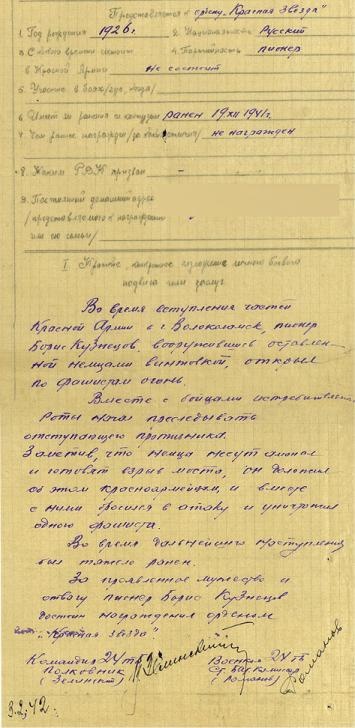 Представляется к ордену "Красная Звезда"
1. Год рождения 1926г. 2. Национальность Русский
3. С какого времени состоит 4. Партийность пионер
в Красной Армии не состоит
5. Участие в боях/где, когда/
6. Имеет ли ранения и контузии ранен 19 XII 1941г.
7. Чем ранее награжден/за какие отличия/ не награжден
8. Каким РВК призван –
9. Постоянный домашний адрес
/представляемого к награждению
или его семьи/
I. Краткое, конкретное изложение личного боевого
подвига или заслуг
Во время вступления частей
Красной Армии в г. Волоколамск, пионер
Борис Кузнецов, вооружившись оставлен-
ной немцами винтовкой, открыл
по фашистам огонь.
Вместе с бойцами истребительной
роты начал преследовать
отступающего противника.
Заметив, что немцы несут аммонал
и готовят взрыв моста, он доложил
об этом красноармейцам, и вместе
с ними бросился в атаку и уничтожил
одного фашиста.
Во время дальнейшего наступления
был тяжело ранен.
За проявленное мужество и
отвагу пионер Борис Кузнецов
достоин награждения орденом
"Красная звезда"
Командир 24 тб Военком 24 тб
Полковник Ст. бат. комиссар
(Зелинский) (Романов)
3.2.42.